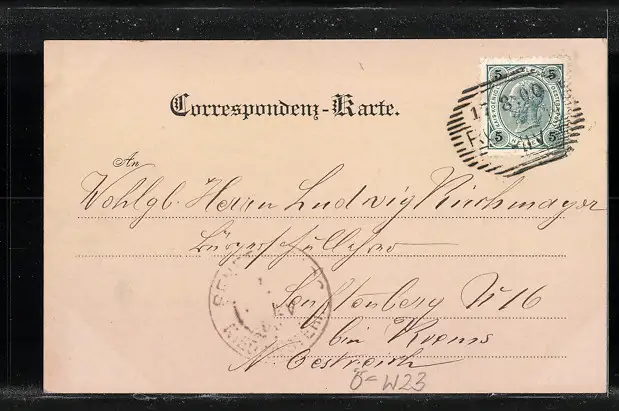 Correspondenz-Karte.
5 5
17 8 00
5 5
An
Wohlgb. Herrn Ludwig Kirchmayer
Bürgerschullehrer
Senftenberg N 16
bei Krems
N. Oestreich
Ö=W23